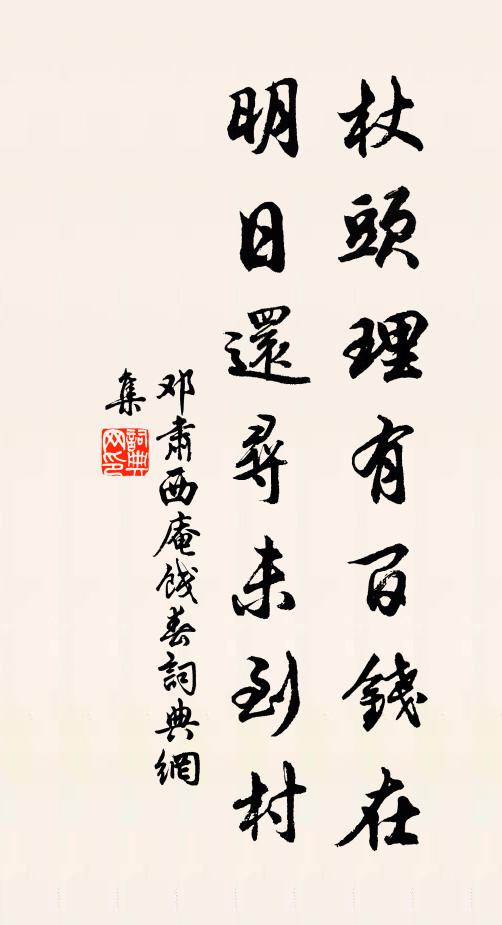 杖頭理有百錢在
明日還尋未到村
邓肅西庵餞春詞典網
集
詞典
网印